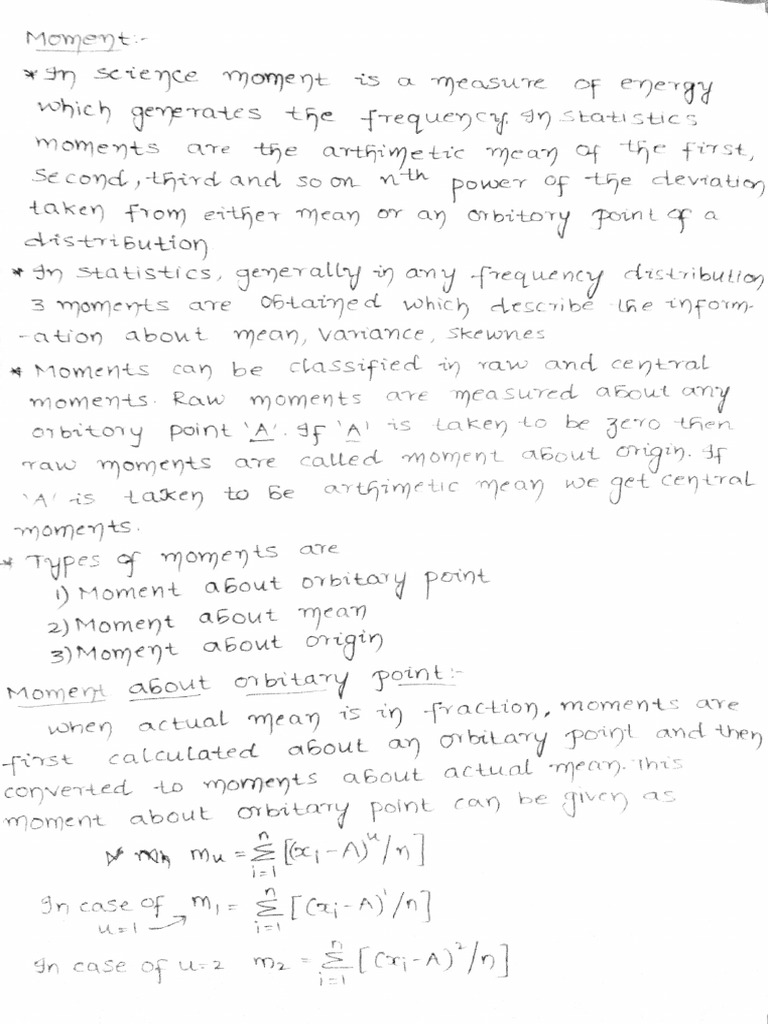 Moment:-
* In science moment is a measure of energy
which generates the frequency. In statistics
moments are the arthimetic mean of the first,
second, third and so on nth power of the deviation
taken from either mean or an orbitory point of a
distribution
* In statistics, generally in any frequency distribution
3 moments are obtained which describe the inform-
-ation about mean, variance, skewnes
* Moments can be classified in raw and central
moments. Raw moments are measured about any
orbitory point 'A'. If 'A' is taken to be zero then
raw moments are called moment about origin. If
'A' is taken to be arthimetic mean we get central
moments.
* Types of moments are
1) Moment about orbitary point
2) Moment about mean
3) Moment about origin
Moment about orbitary point:-
when actual mean is in fraction, moments are
first calculated about an orbitary point and then
converted to moments about actual mean. This
moment about orbitary point can be given as
mu = n Σ i=1 [(xi-A)^u/n]
In case of u=1 → m1 = n Σ i=1 [(xi-A)^1/n]
In case of u=2 m2 = n Σ i=1 [(xi-A)^2/n]